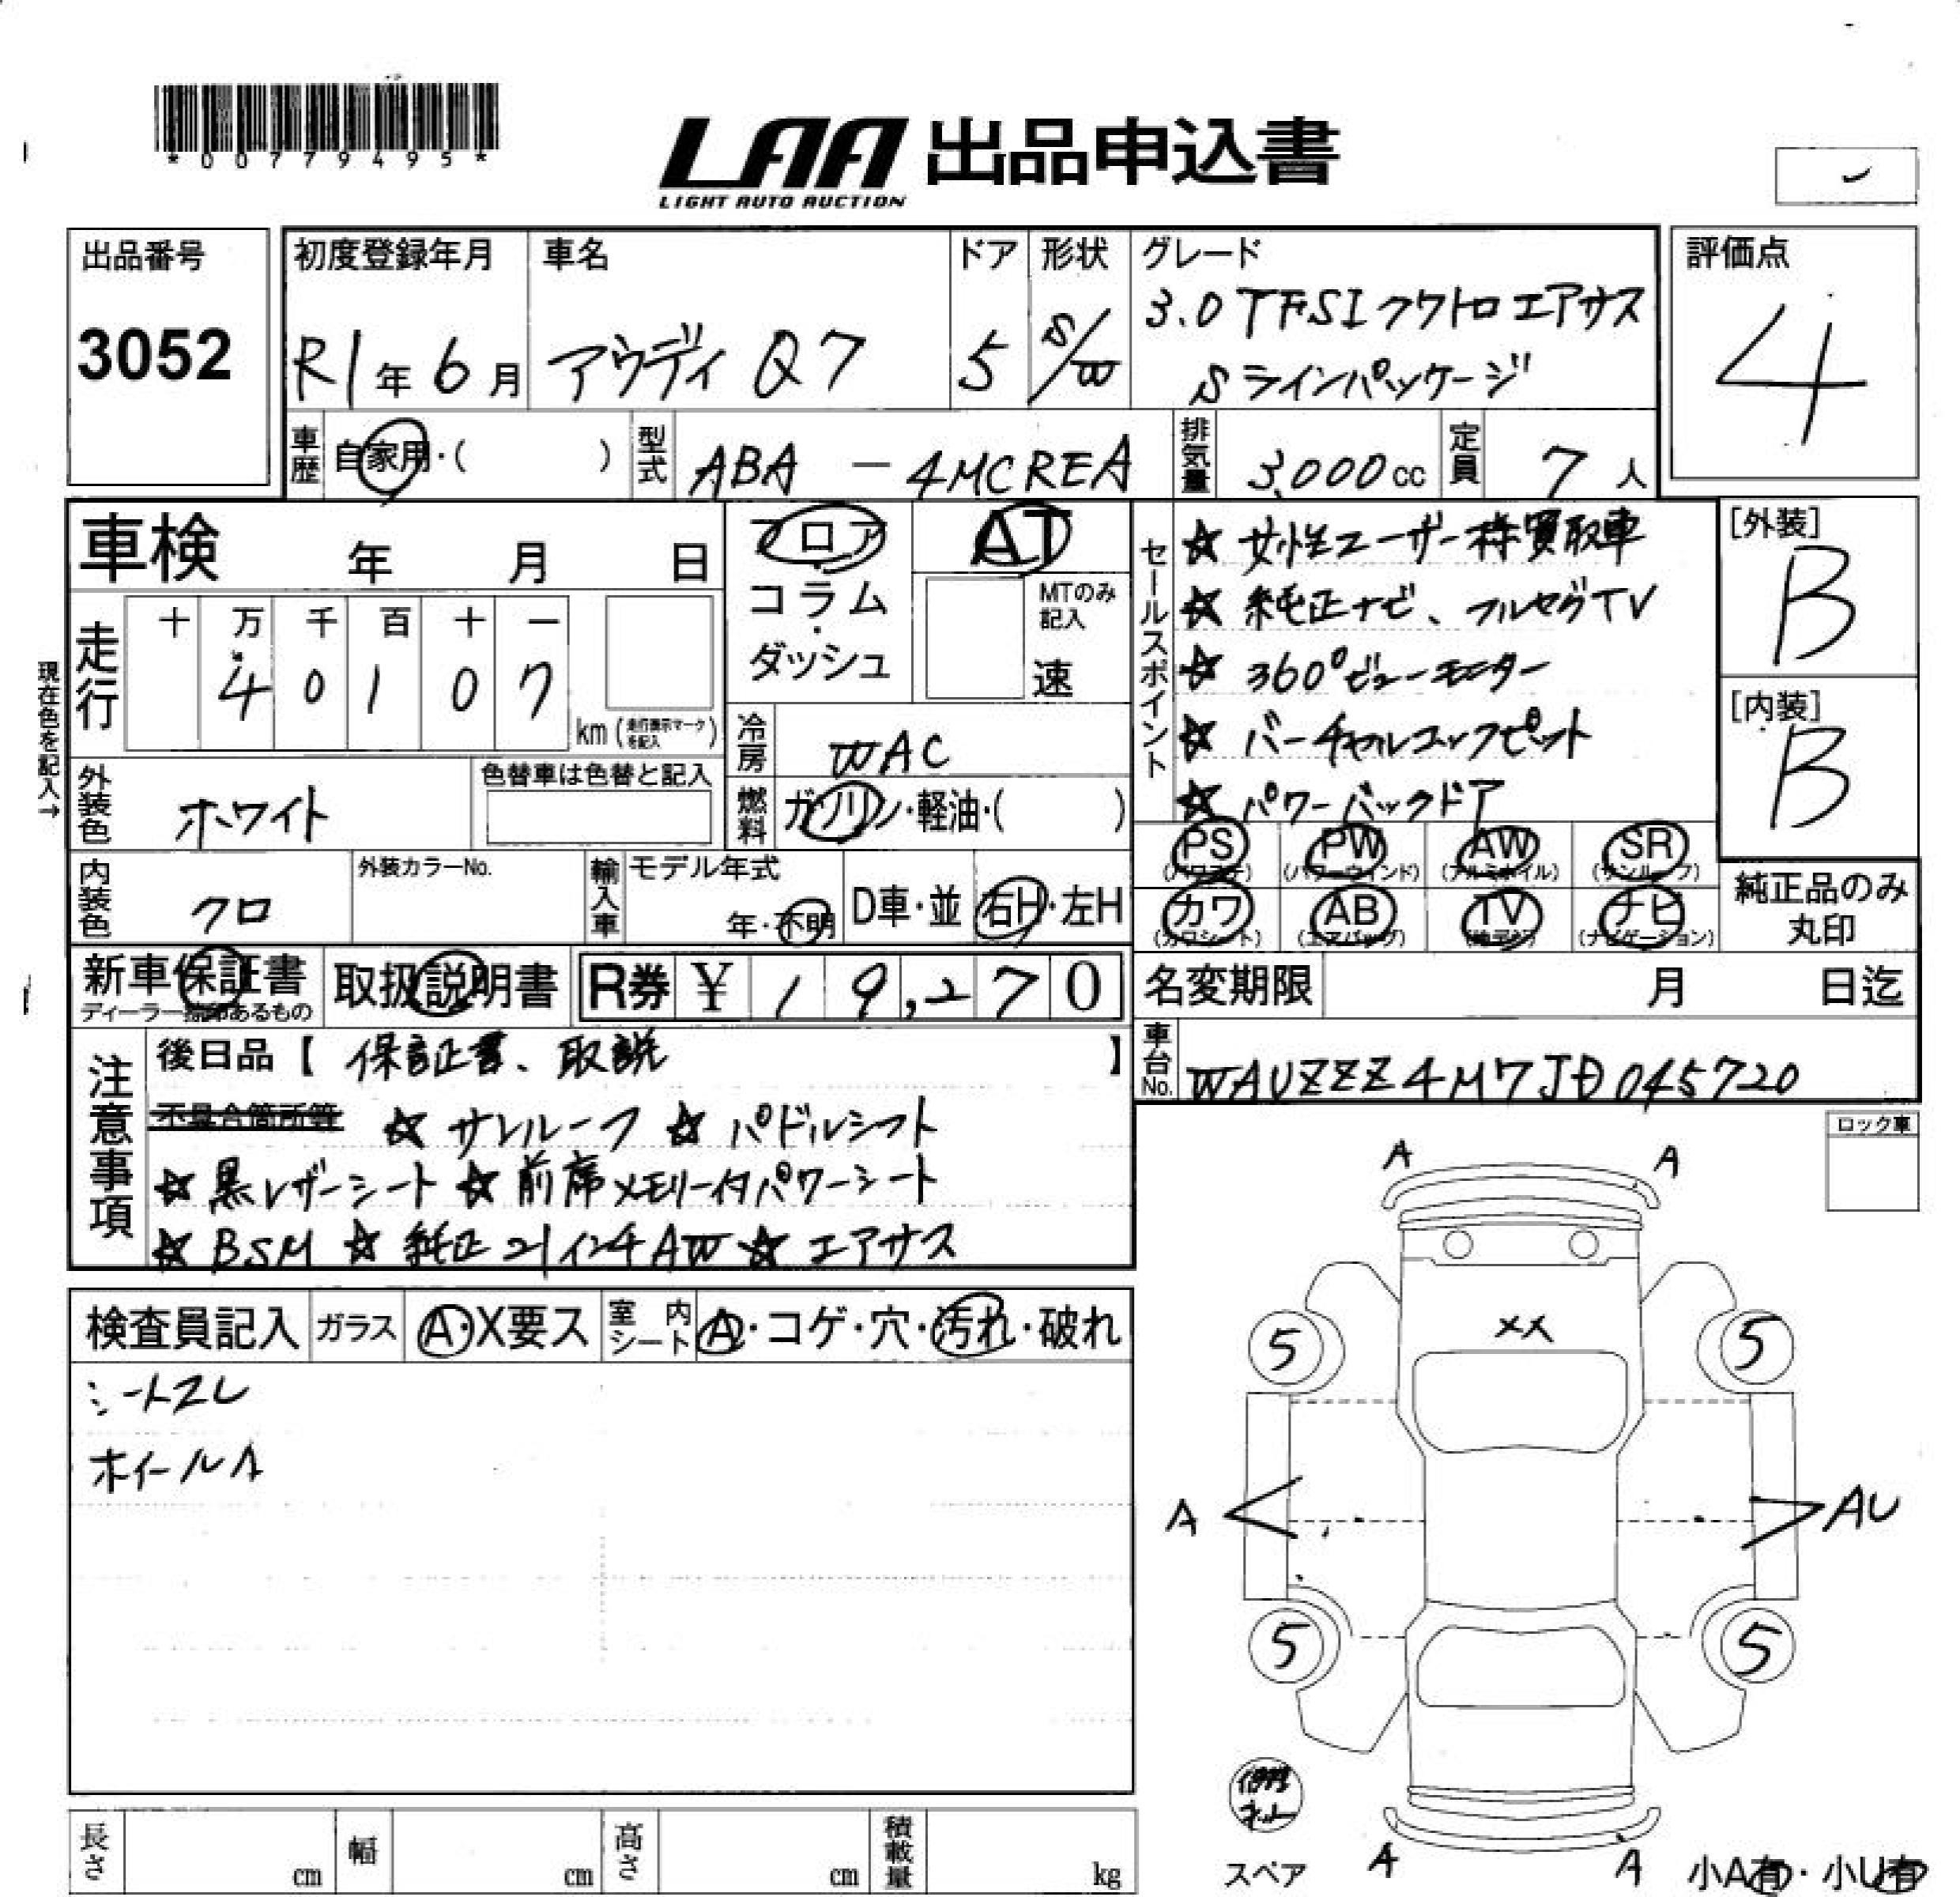 *00779495*
LAA 出品申込書
LIGHT AUTO AUCTION
出品番号
3052
初度登録年月
R1年6月
車名
アウディ Q7
ドア
5
形状
S/W
グレード
3.0 TFSI クワトロ エアサス
Sラインパッケージ
評価点
4
車歴 自家用・( )
型式 ABA - 4MCREA
排気量 3,000cc
定員 7人
車検 年 月 日
フロア
コラム・
ダッシュ
AT
MTのみ
記入
速
現在色を記入→
走行
十 万 千 百 十 一
4 0 1 0 7
km (走行表示マークを記入)
冷房 WAC
外装色 ホワイト
色替車は色替と記入
燃料 ガソリン・軽油・( )
セールスポイント
☆ 女性ユーザー様買取車
☆ 純正ナビ、フルセグTV
☆ 360°ビューモニター
☆ バーチャルコックピット
☆ パワーバックドア
[外装]
B
[内装]
B
PS (パワステ) PW (パワーウインド) AW (アルミホイル) SR (サンルーフ)
カワ (カワシート) AB (エアバッグ) TV ナビ (ナビゲーション)
純正品のみ
丸印
内装色 クロ
外装カラーNo.
輸入車
モデル年式
年・不明
D車・並 右H・左H
新車保証書
ディーラー捺印あるもの
取扱説明書
R券 ¥ 19,270
名変期限 月 日迄
車台No. WAUZZZ4M7JD045720
注意事項
後日品【 保証書、取説 】
不具合箇所等 ☆ サンルーフ ☆ パドルシフト
☆ 黒レザーシート ☆ 前席メモリー付パワーシート
☆ BSM ☆ 純正21インチAW ☆ エアサス
ロック車
検査員記入 ガラス A・X要ス 室内シート A・コゲ・穴・汚れ・破れ
シートスレ
ホイールA
A A
XX
5 5
A AU
5 5
スペア
A A
小A有・小U有
長さ cm 幅 cm 高さ cm 積載量 kg